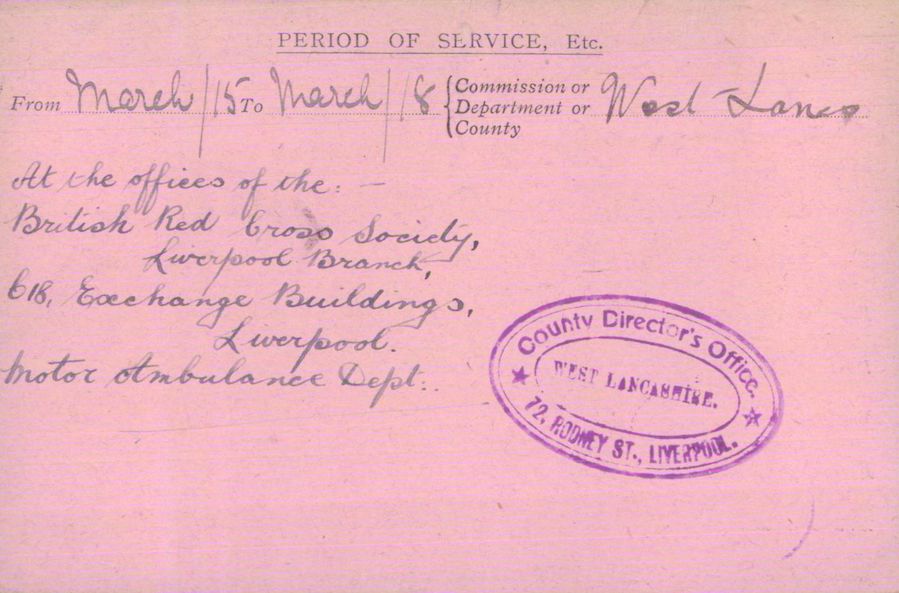 PERIOD OF SERVICE, Etc.
From March/15 To March/18 { Commission or Department or County West Lancs
At the offices of the: —
British Red Cross Society,
Liverpool Branch,
C18, Exchange Buildings,
Liverpool.
Motor Ambulance Dept:.
County Director's Office.
WEST LANCASHIRE.
72, RODNEY ST., LIVERPOOL.